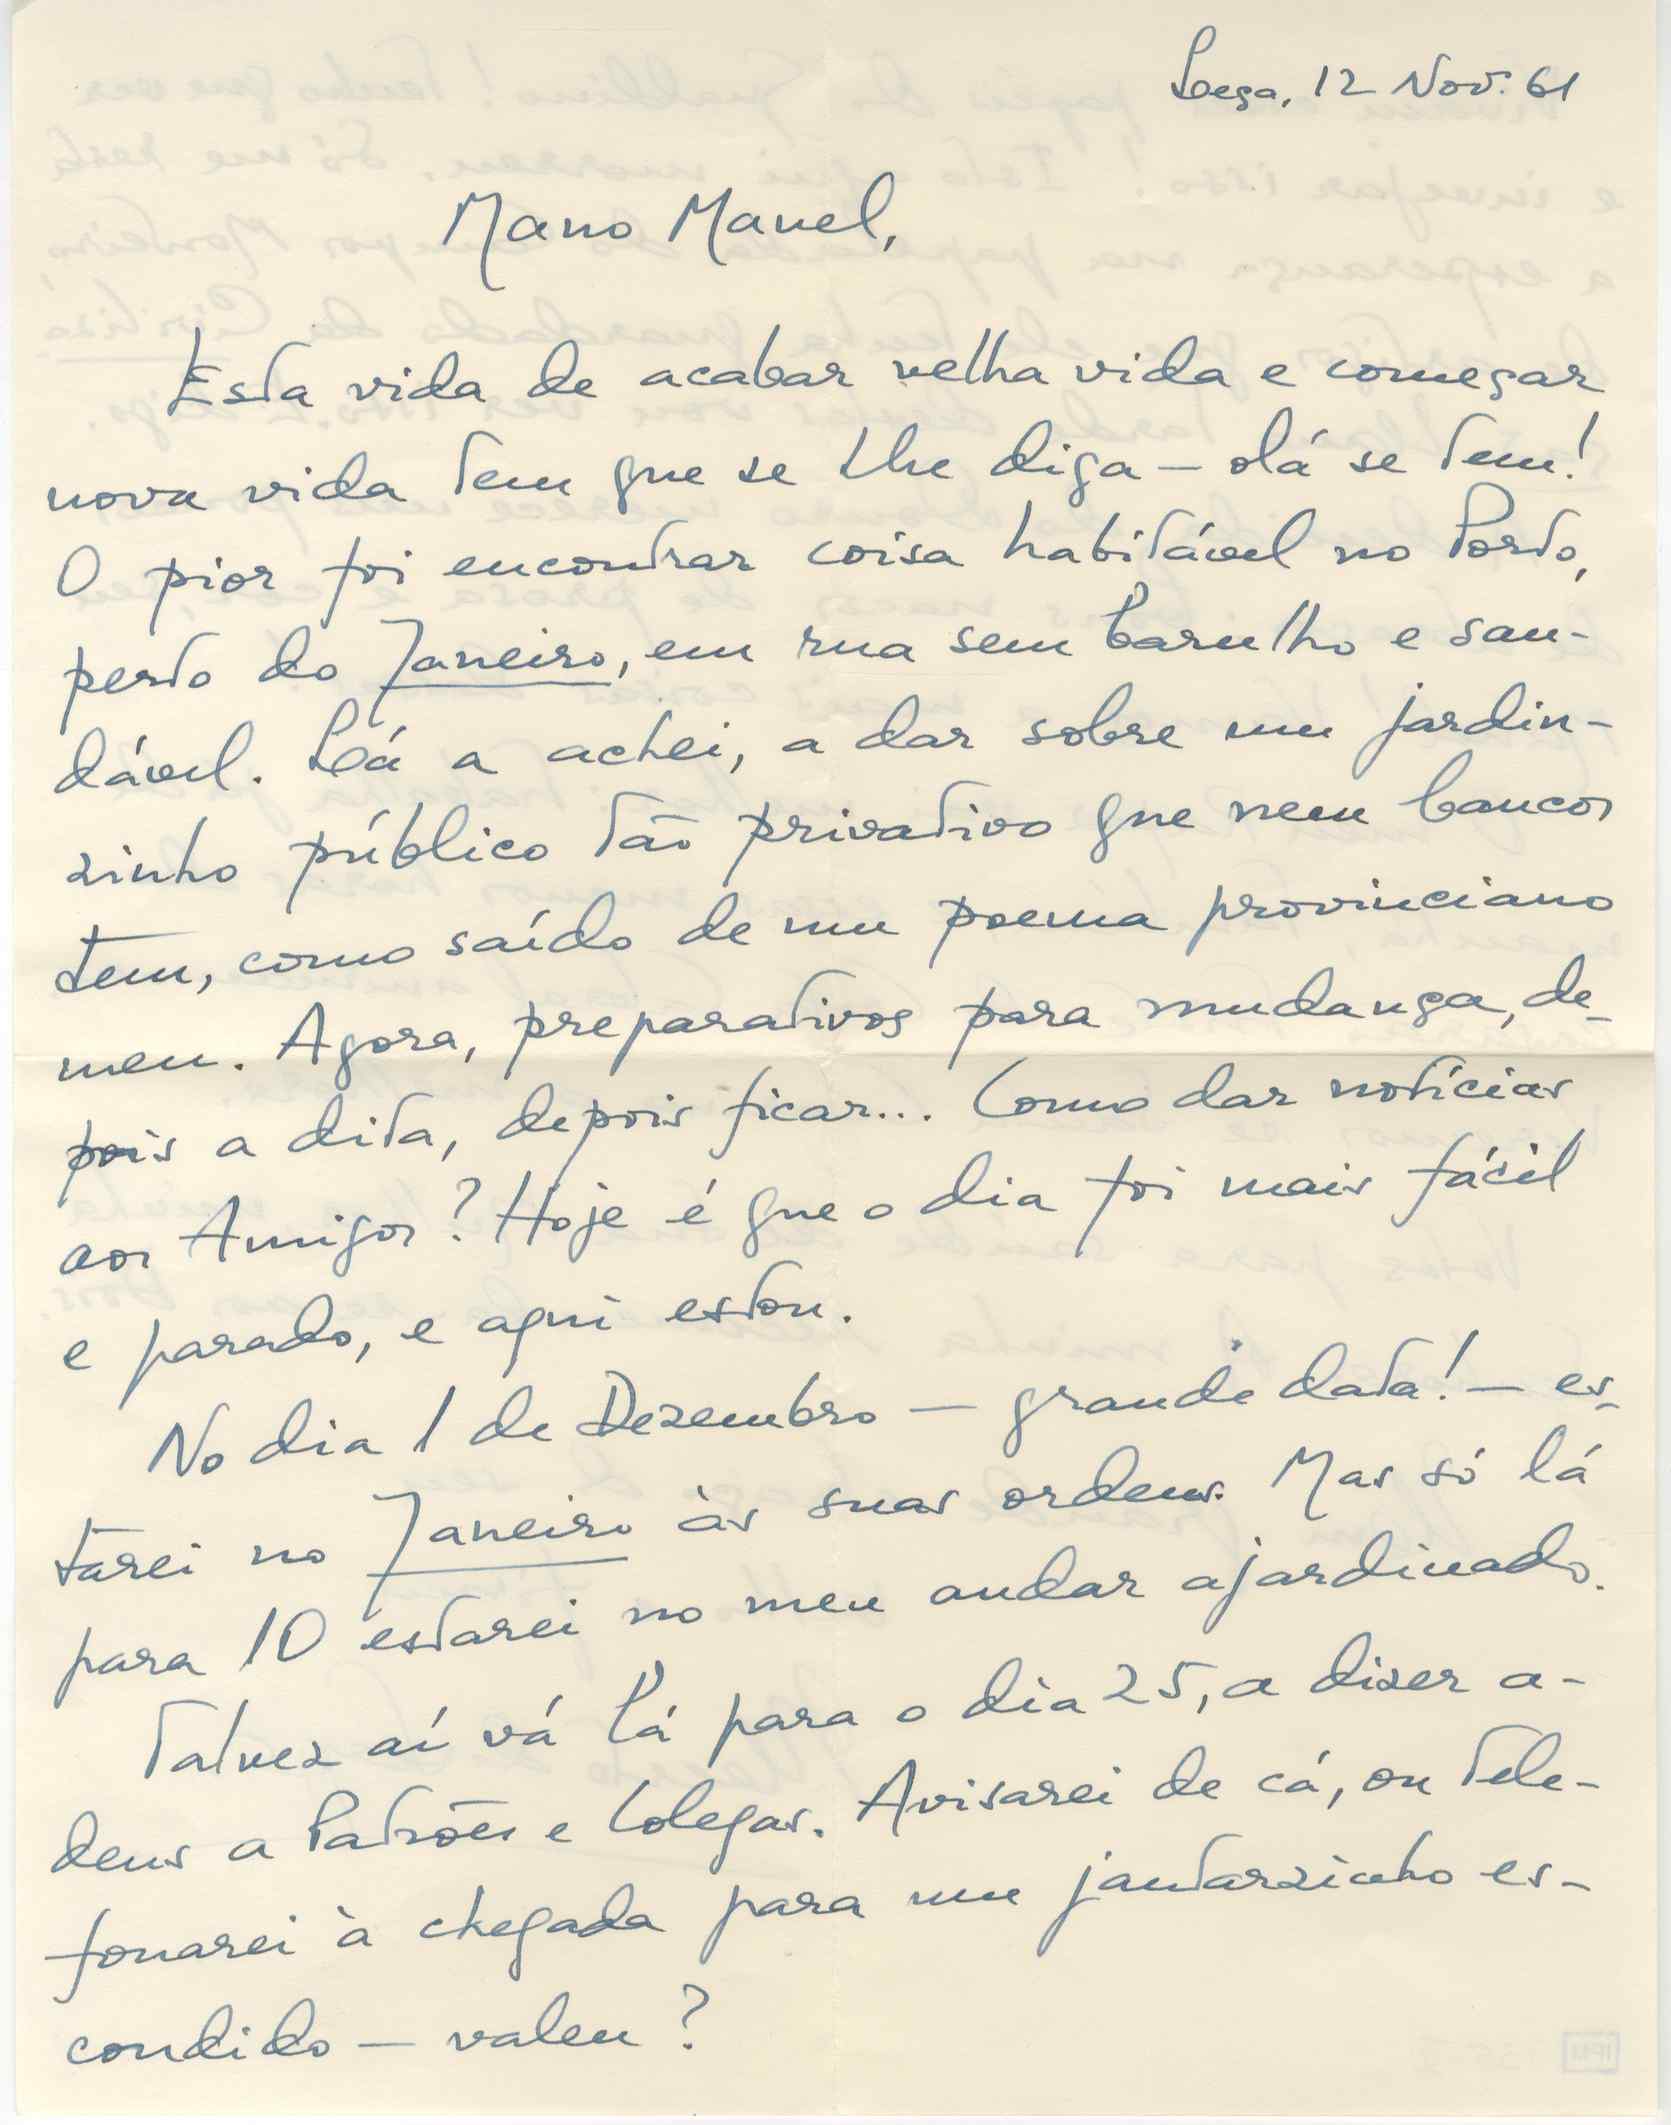 Leça, 12 Nov. 61
Mano Manel,
Esta vida de acabar velha vida e começar
nova vida tem que se lhe diga — olá se tem!
O pior foi encontrar coisa habitável no Porto,
perto do Janeiro, em rua sem barulho e sau-
dável. Lá a achei, a dar sobre um jardin-
zinho público tão privativo que nem bancos
tem, como saído de um poema provinciano
meu. Agora, preparativos para mudança, de-
pois a dita, depois ficar... Como dar notícias
aos Amigos? Hoje é que o dia foi mais fácil
e parado, e aqui estou.
No dia 1 de Dezembro — grande data! — es-
tarei no Janeiro às suas ordens. Mas só lá
para 10 estarei no meu andar ajardinado.
Talvez aí vá lá para o dia 25, a dizer a-
deus a Patrões e Colegas. Avisarei de cá, ou tele-
fonarei à chegada para um jantarzinho es-
condido — valeu?